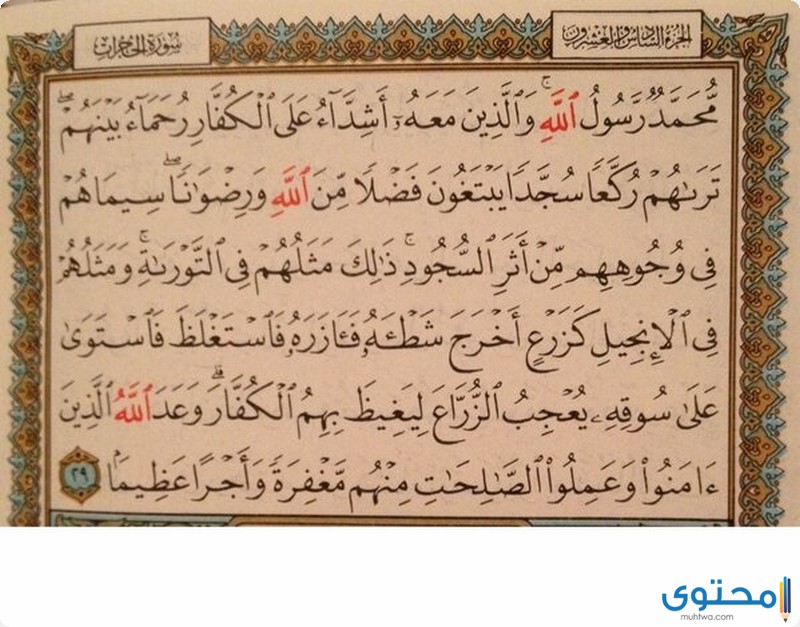 الجزء السادس والعشرون
سورة الحجرات
مُّحَمَّدٌ رَّسُولُ ٱللَّهِۚ وَٱلَّذِينَ مَعَهُۥٓ أَشِدَّآءُ عَلَى ٱلۡكُفَّارِ رُحَمَآءُ بَيۡنَهُمۡۖ
تَرَىٰهُمۡ رُكَّعٗا سُجَّدٗا يَبۡتَغُونَ فَضۡلٗا مِّنَ ٱللَّهِ وَرِضۡوَٰنٗاۖ سِيمَاهُمۡ
فِي وُجُوهِهِم مِّنۡ أَثَرِ ٱلسُّجُودِۚ ذَٰلِكَ مَثَلُهُمۡ فِي ٱلتَّوۡرَىٰةِۚ وَمَثَلُهُمۡ
فِي ٱلۡإِنجِيلِ كَزَرۡعٍ أَخۡرَجَ شَطۡـَٔهُۥ فَـَٔازَرَهُۥ فَٱسۡتَغۡلَظَ فَٱسۡتَوَىٰ
عَلَىٰ سُوقِهِۦ يُعۡجِبُ ٱلزُّرَّاعَ لِيَغِيظَ بِهِمُ ٱلۡكُفَّارَۗ وَعَدَ ٱللَّهُ ٱلَّذِينَ
ءَامَنُواْ وَعَمِلُواْ ٱلصَّٰلِحَٰتِ مِنۡهُم مَّغۡفِرَةٗ وَأَجۡرًا عَظِيمَۢا ٢٩
محتوى
muhtwa.com